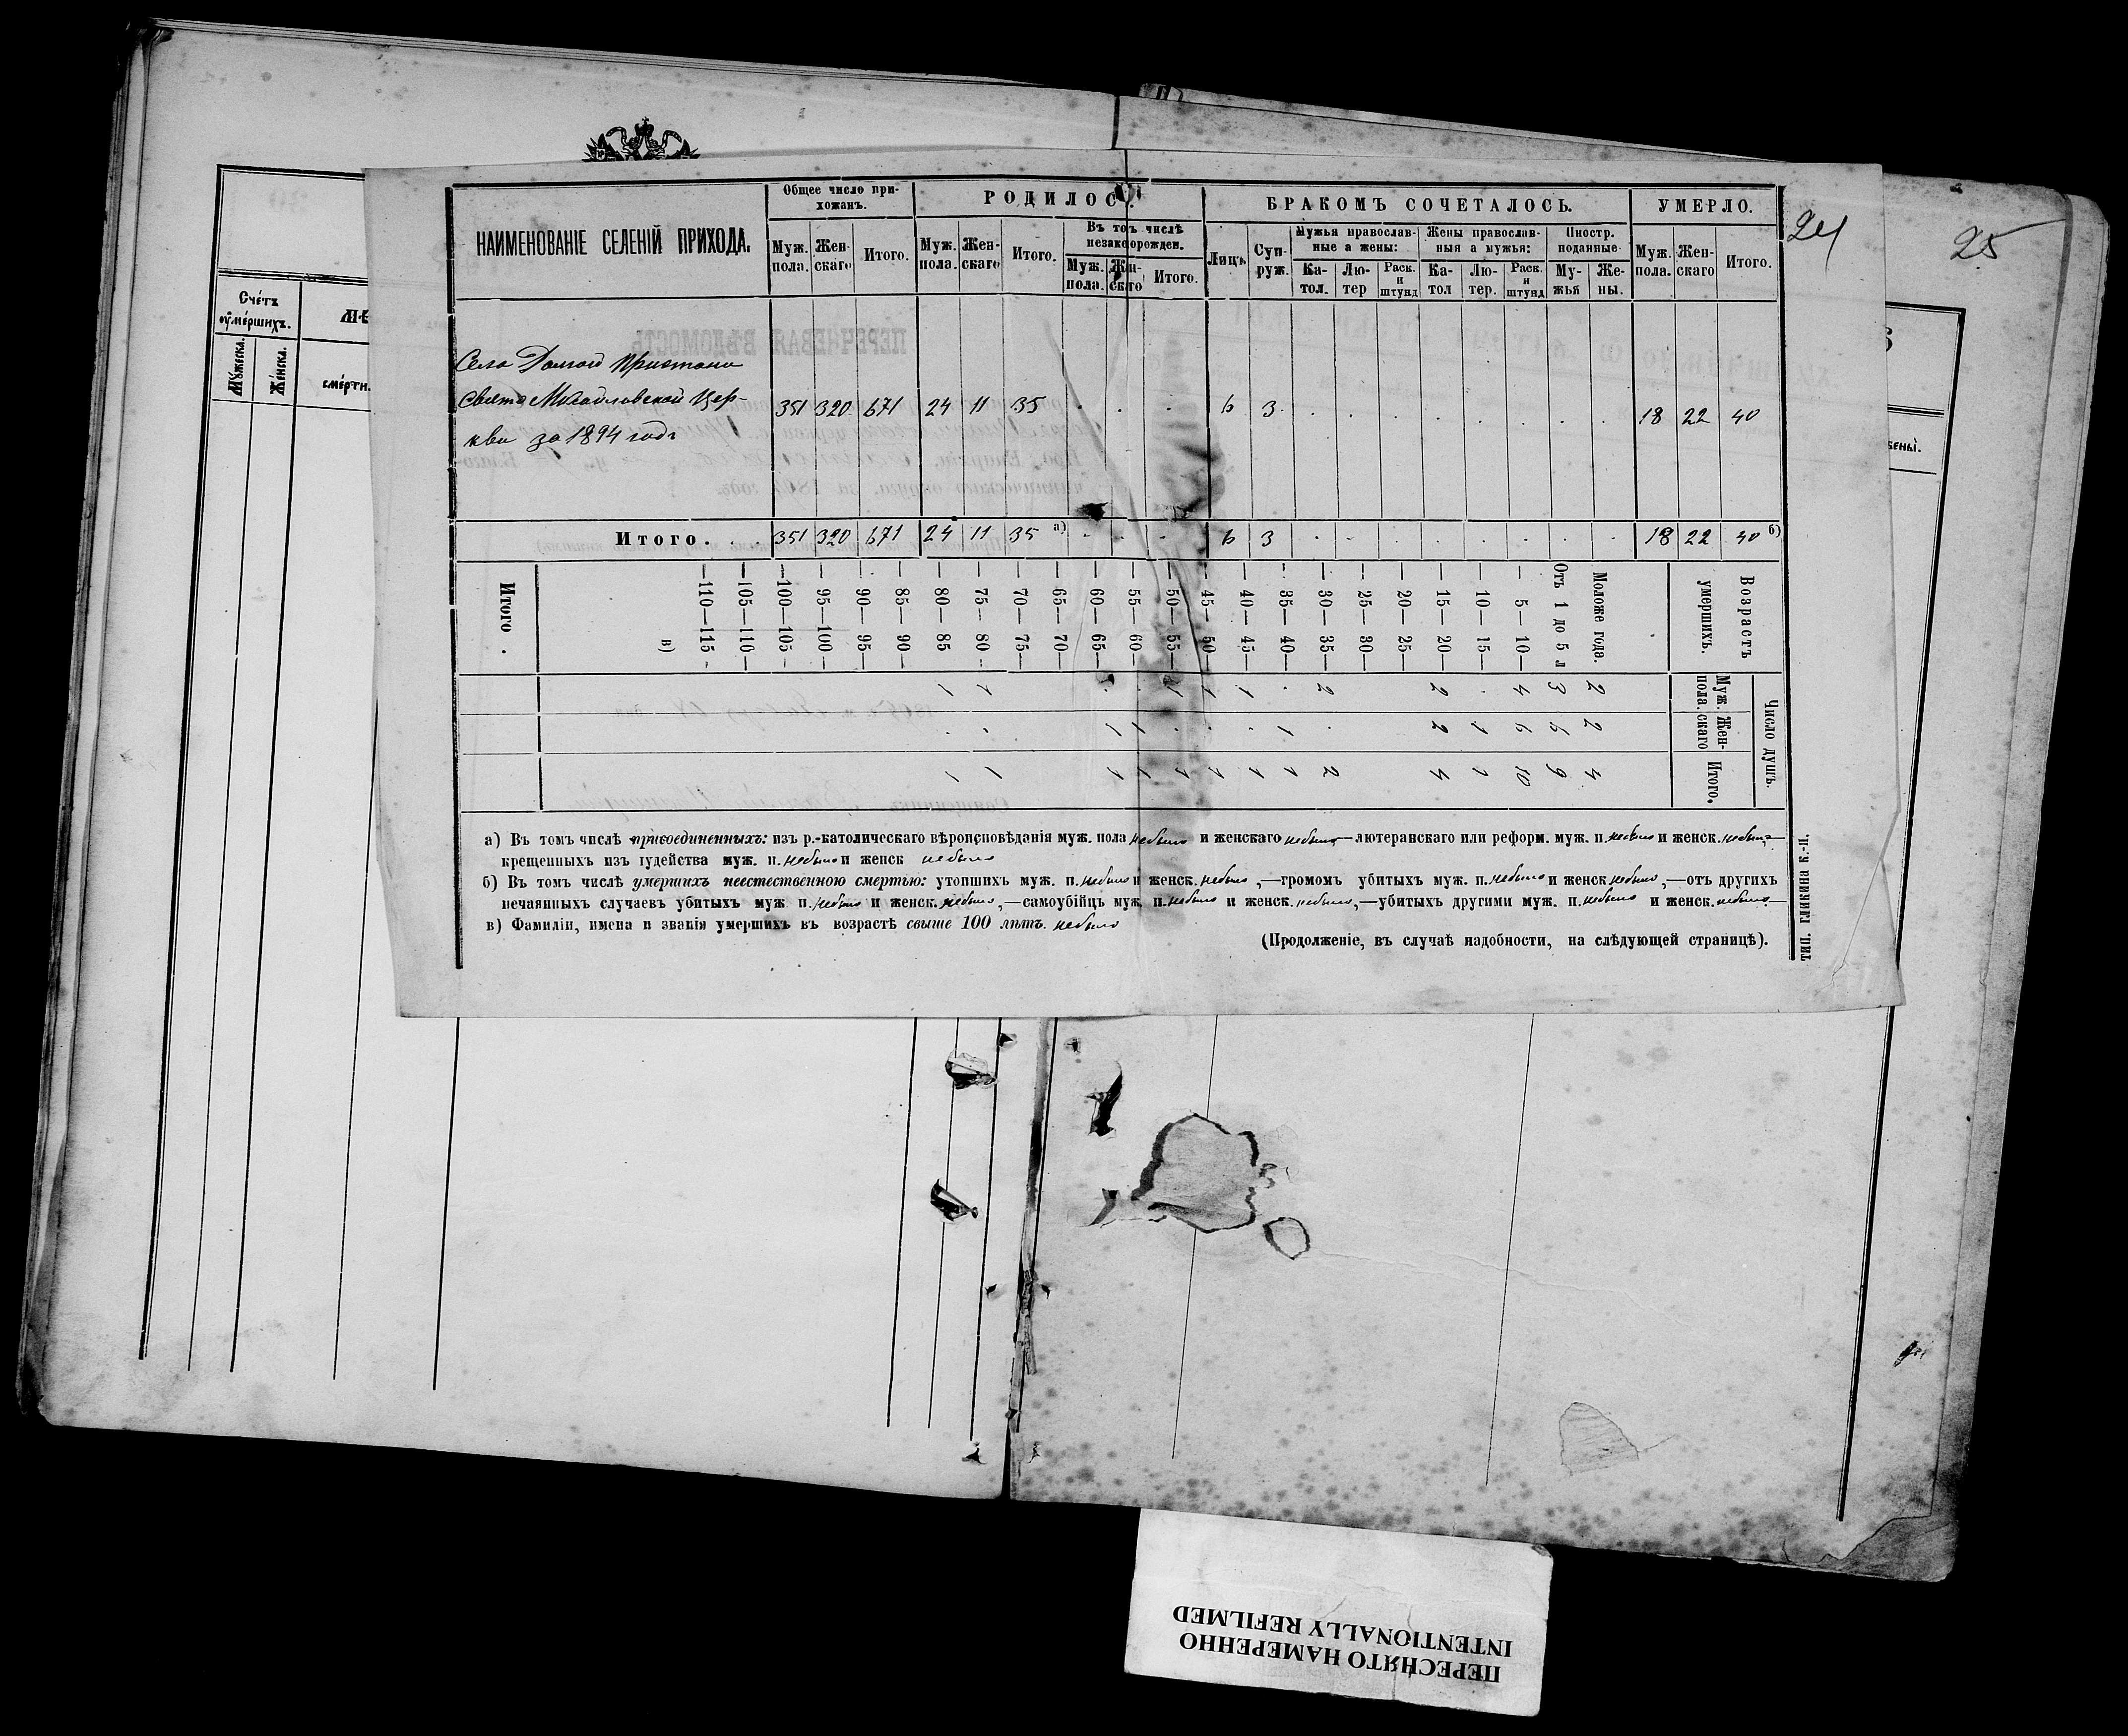 24
25
Общее число при-
хожанъ.
РОДИЛОСЬ.
БРАКОМЪ СОЧЕТАЛОСЬ.
УМЕРЛО.
НАИМЕНОВАНІЕ СЕЛЕНІЙ ПРИХОДА.
Муж. пола.
Жен- скаго
Итого.
Муж. пола.
Жен- скаго
Итого.
Въ томъ числѣ незаконорожден.
Муж. пола.
Жен- скаго
Итого.
Лицъ
Суп- руж.
Мужья православ- ные а жены:
Ка- тол.
Лю- тер
Раск. и штунд
Жены православ- ныя а мужья:
Ка- тол
Лю- тер.
Раск. и штунд
Иностр. поданные
Му- жья
Же- ны.
Муж. пола.
Жен- скаго
Итого.
Села Долгой Пристани
Свято Михайловской Цер-
кви за 1894 годъ
351 320 671 24 11 35 . . . 6 3 . . . . . . . . 18 22 40
Итого. . . 351 320 671 24 11 35 а) . . . 6 3 . . . . . . . . 18 22 40 б)
Возрастъ умершихъ.
Число душъ.
Муж. пола.
Жен- скаго
Итого.
Моложе года. 2 2 4
Отъ 1 до 5 л 3 6 9
— 5— 10— 4 6 10
— 10— 15— . 1 1
— 15— 20— 2 2 4
— 20— 25—
— 25— 30—
— 30— 35— 2 . 2
— 35— 40— . 1 1
— 40— 45— 1 . 1
— 45— 50— 1 . 1
— 50— 55— 1 . 1
— 55— 60— . 1 1
— 60— 65— . 1 1
— 65— 70—
— 70— 75—
— 75— 80— 1 . 1
— 80— 85 1 . 1
— 85— 90—
— 90— 95—
— 95—100—
—100—105—
—105—110—
—110—115—
в)
Итого .
а) Въ томъ числѣ присоединенныхъ: изъ р.-католическаго вѣроисповѣданія муж. пола небыло и женскаго небыло—лютеранскаго или реформ. муж. п. небыло и женск. небыло—
крещенныхъ изъ іудейства муж. п. небыло и женск небыло
б) Въ томъ числѣ умершихъ неестественною смертью: утопшихъ муж. п. небыло и женск. небыло,—громомъ убитыхъ муж. п. небыло и женск небыло,—отъ другихъ
нечаянныхъ случаевъ убитыхъ муж п. небыло и женск. небыло,—самоубійцъ муж п. небыло и женск. небыло,—убитыхъ другими муж. п. небыло и женск. небыло—
в) Фамиліи, имена и званія умершихъ въ возрастѣ свыше 100 лѣтъ. небыло
(Продолженіе, въ случаѣ надобности, на слѣдующей страницѣ).
ТИП. ГЛИКИНА К.-П.
Счетъ
умершихъ.
Мужеска.
Женска.
смертн.
ПЕРЕСНЯТО НАМЕРЕННО
INTENTIONALLY REFILMED